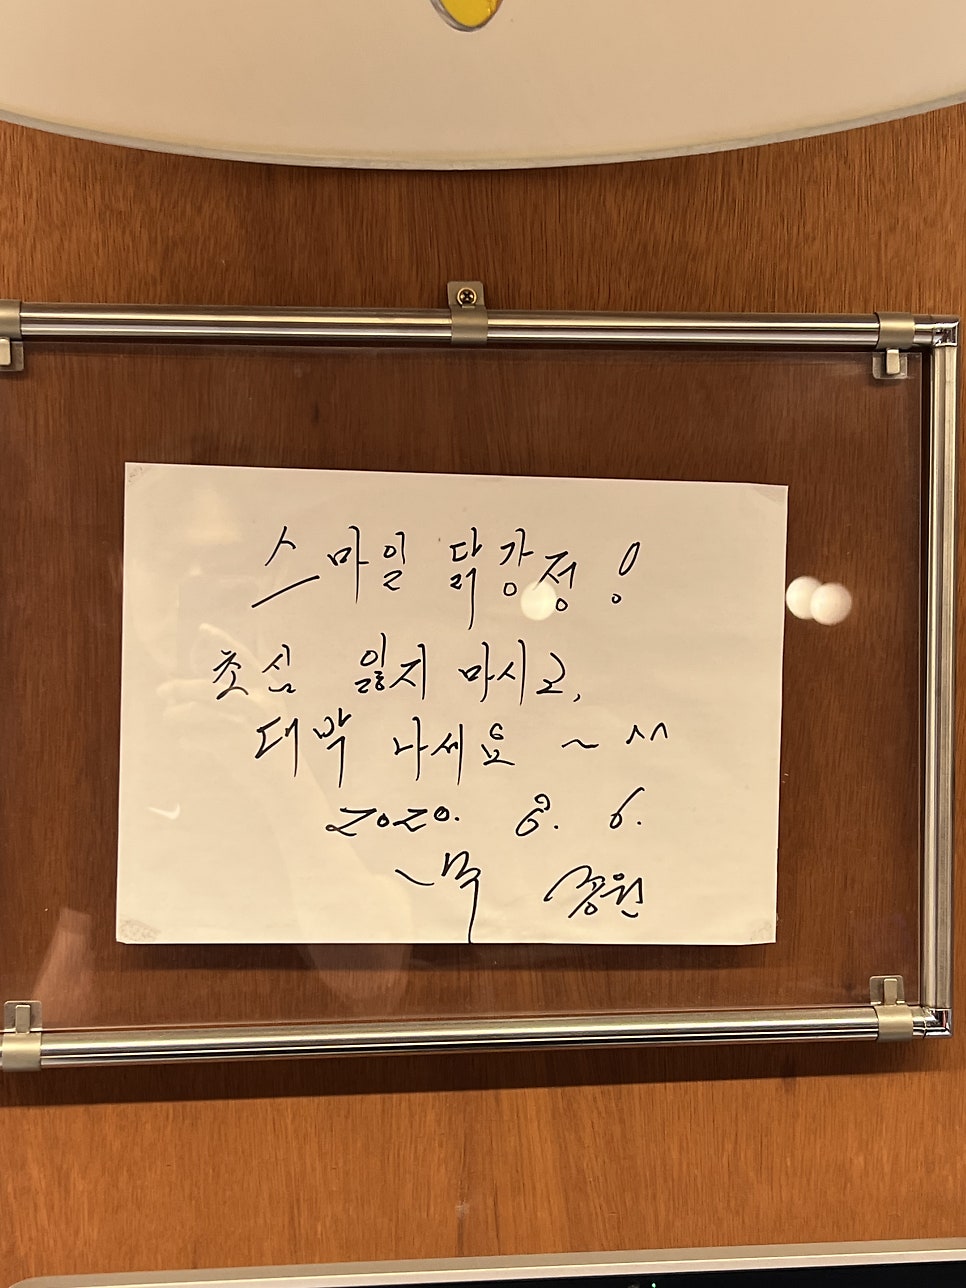 스마일 닭강정!
초심 잃지 마시고,
대박 나세요 ~ ^^
2020. 8. 6.
종원